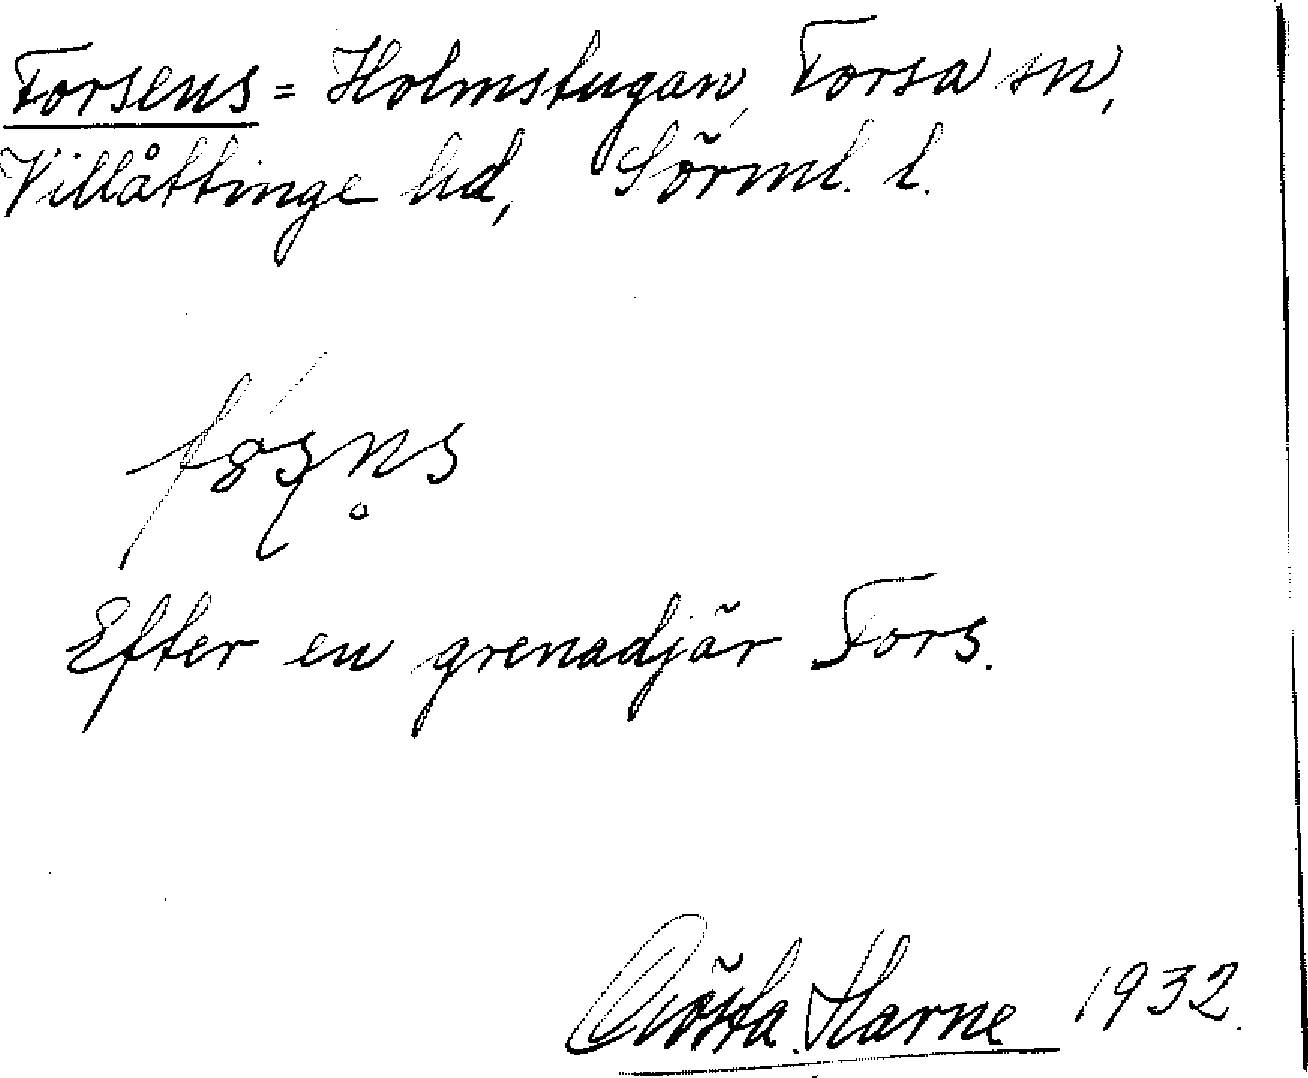 Forsens = Holmstugan, Forsa sn,
Villåttinge hd, Sörml. l.
Efter en grenadjär Fors.
Gösta Harne 1932.